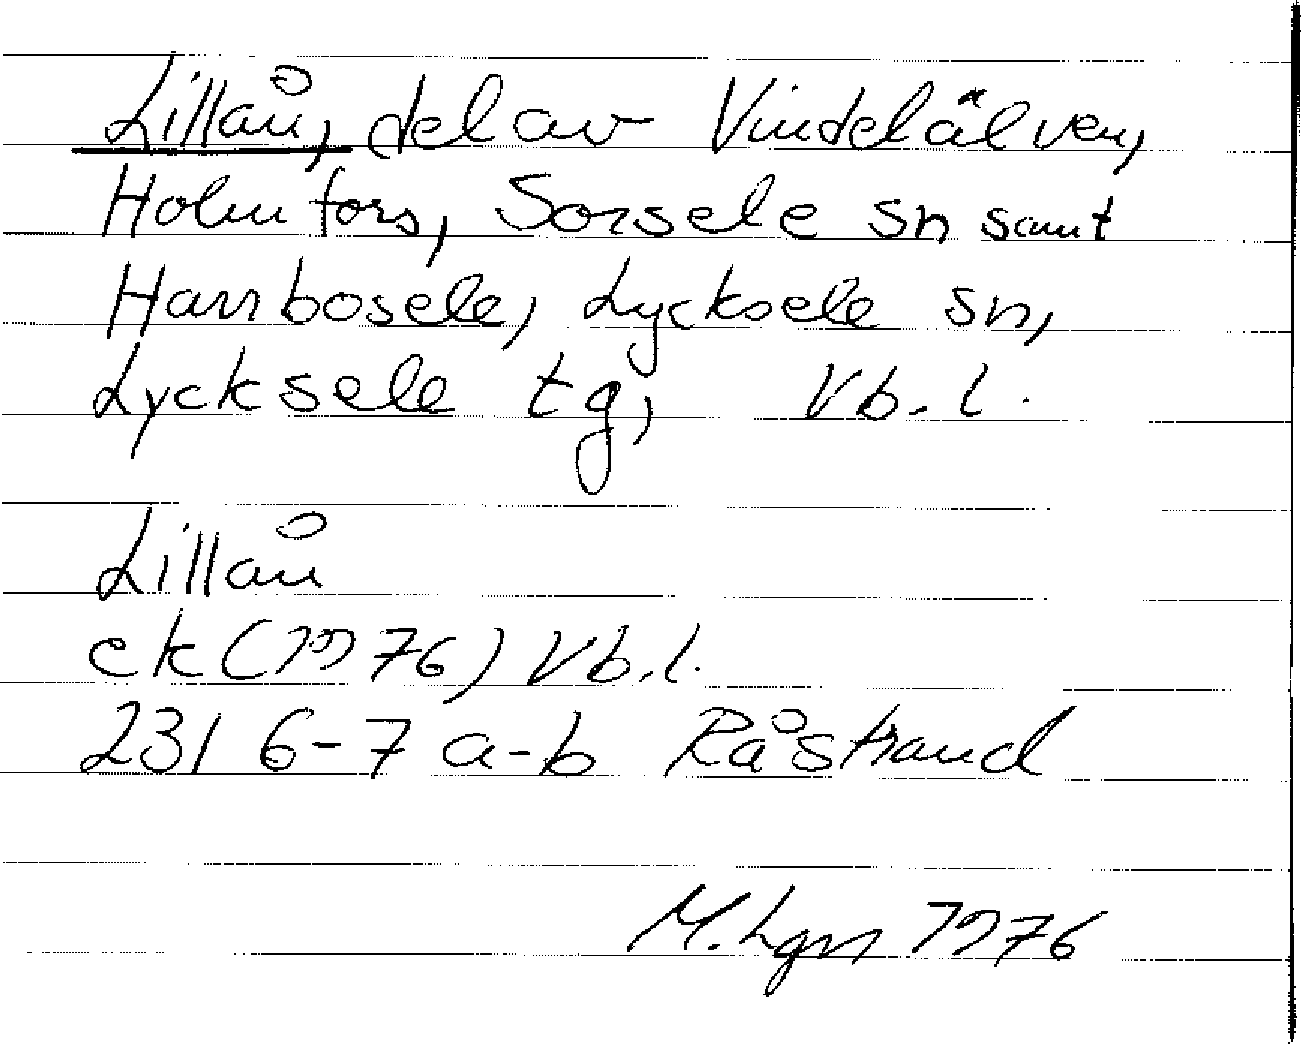 Lillån, del av Vindelälven,
Holmfors, Sorsele sn samt
Harrbosele, Lycksele sn,
Lycksele tg, Vb. l.
Lillån
ek (1976) Vb. l.
231 6-7 a-b Råstrand
M. Lgn 1976